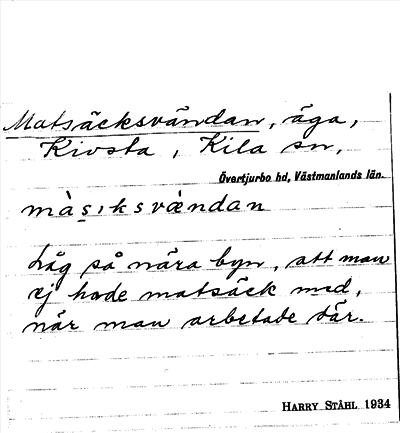 Matsäcksvändan, äga,
Kivsta, Kila sn,
Övertjurbo hd, Västmanlands län.
màsıksvὰndan
Låg så nära byn, att man
ej hade matsäck med,
när man arbetade där.
HARRY STÅHL 1934